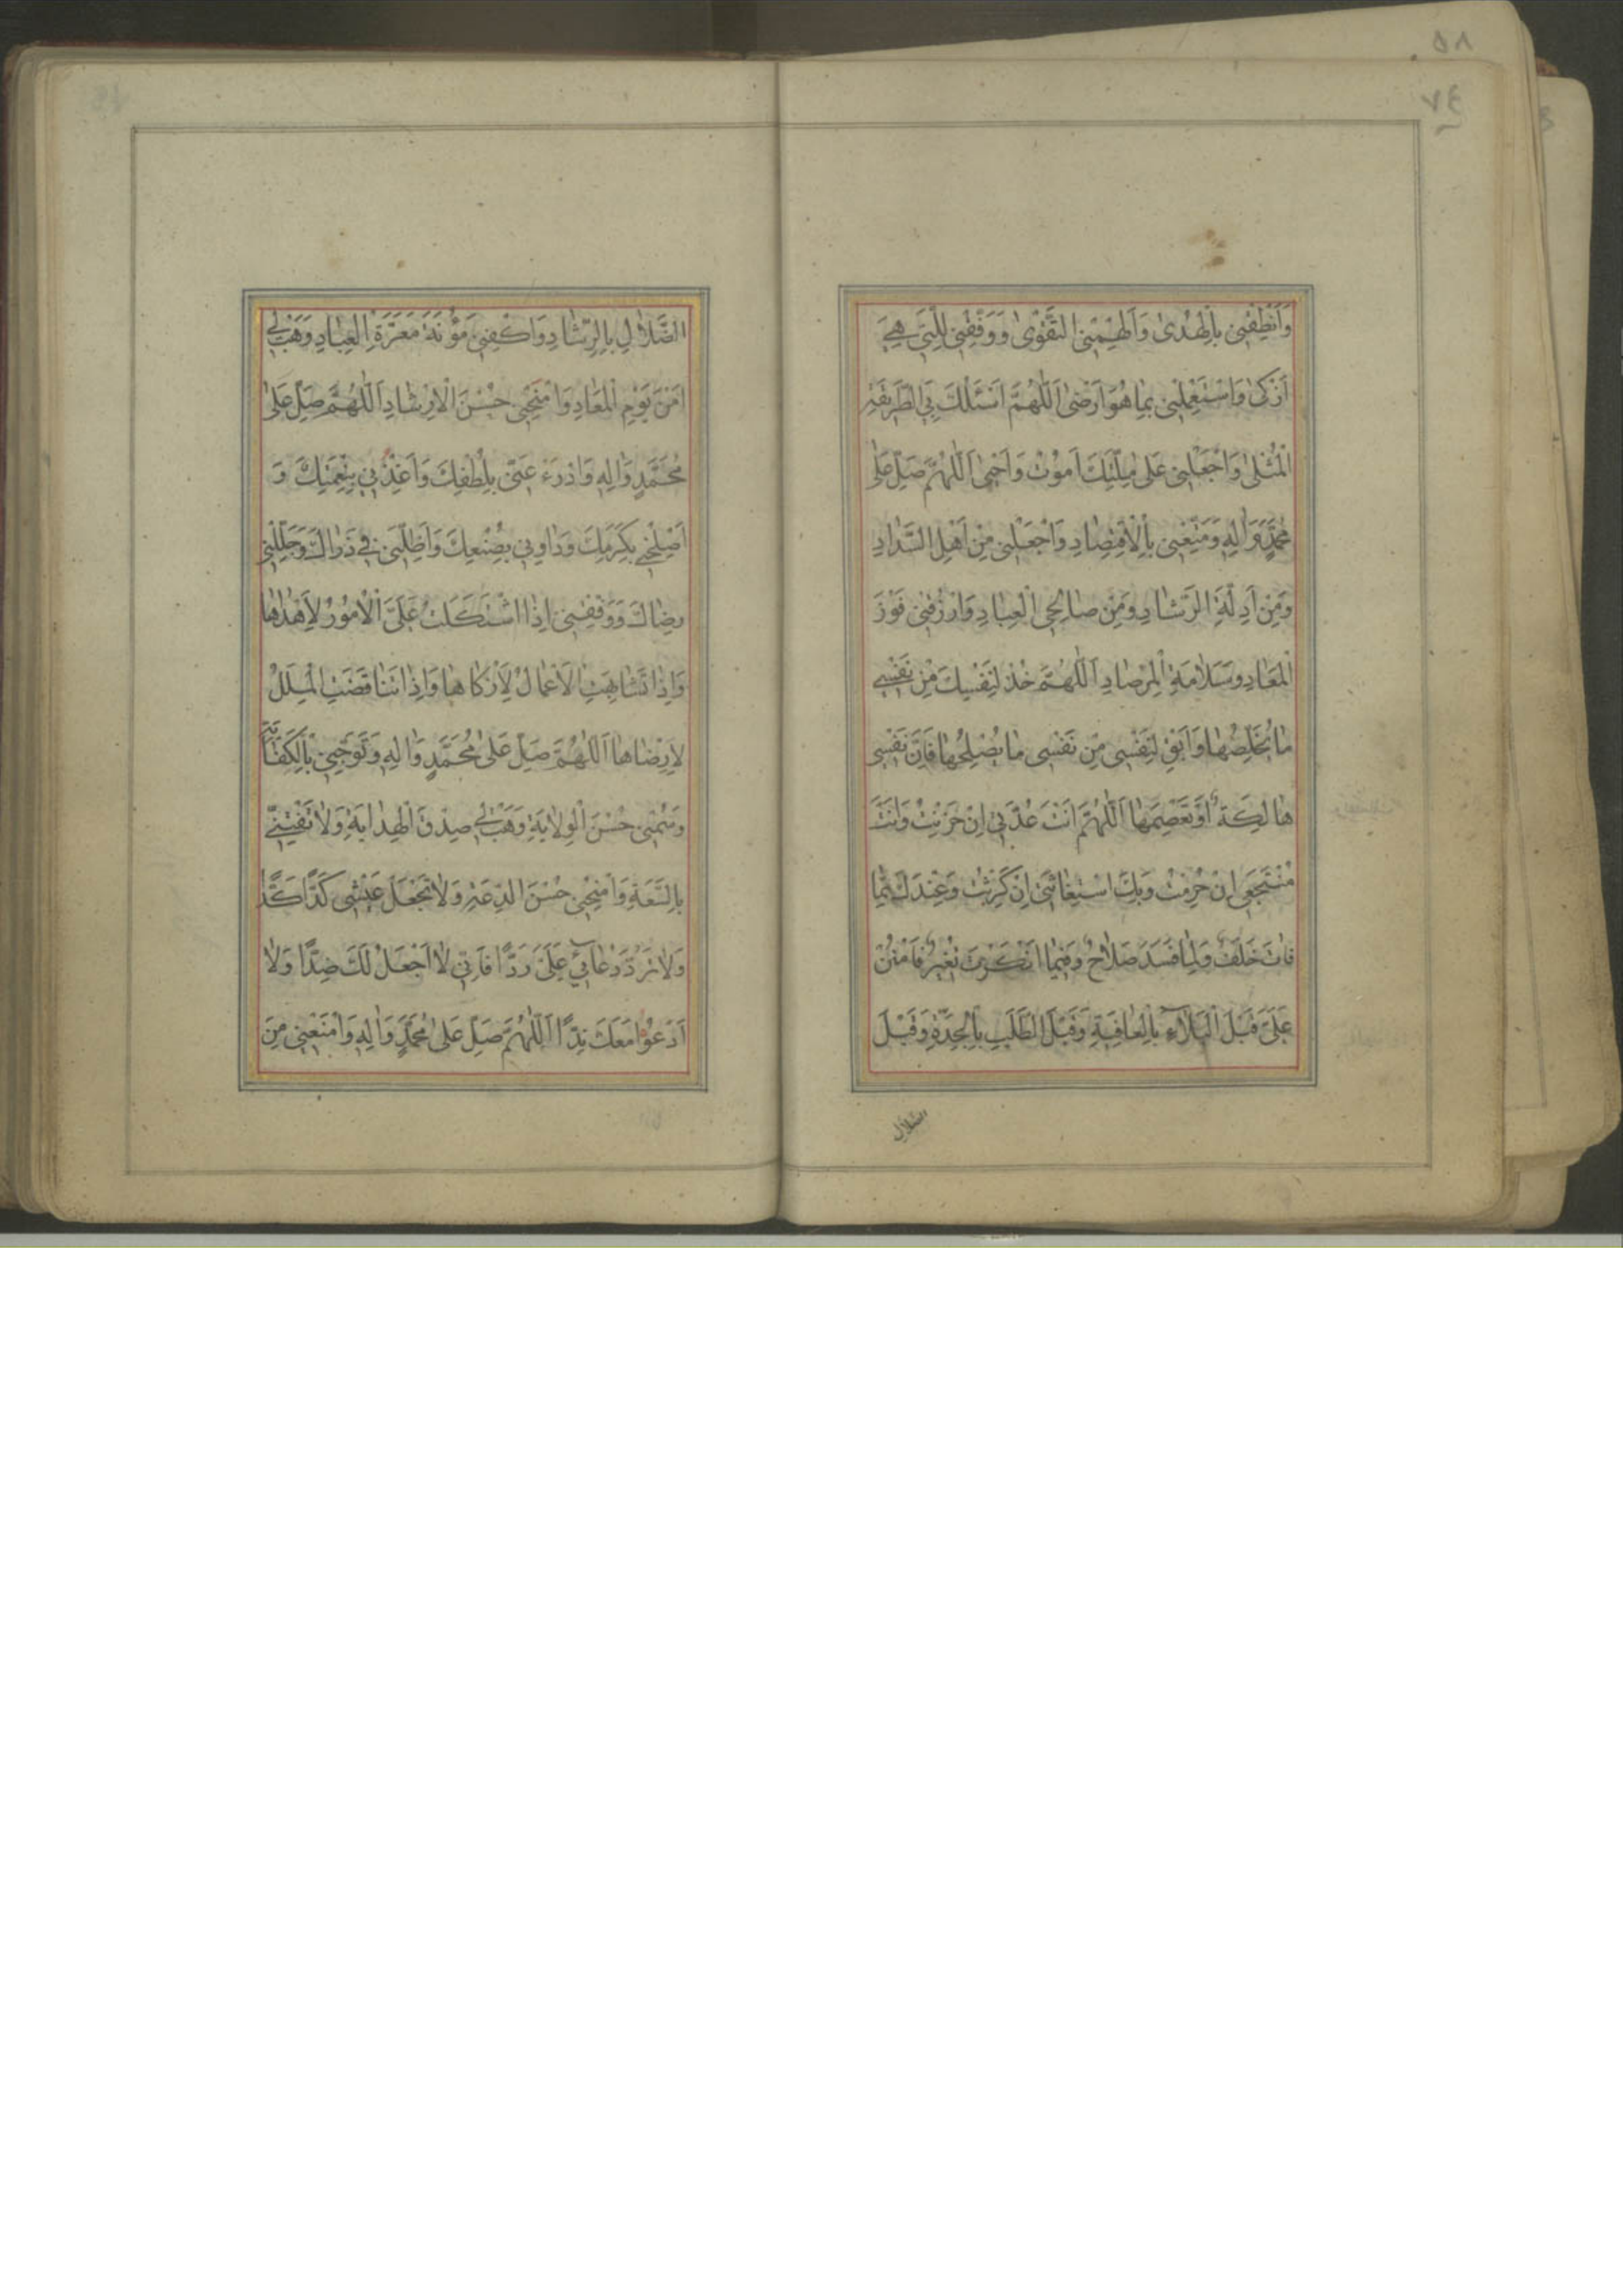 وَاَنْطِقْنِي بِالْهُدىٰ وَاَلْهِمْنِي التَّقْوىٰ وَوَفِّقْنِي لِلَّتِي هِيَ
اَزْكىٰ وَاسْتَعْمِلْنِي بِمٰا هُوَ اَرْضىٰ اَللّٰهُمَّ اسْئَلُكَ بِيَ الطَّرِيقَةَ
الْمُثْلىٰ وَاجْعَلْنِي عَلىٰ مِلَّتِكَ اَمُوْتُ وَاَحْيىٰ اَللّٰهُمَّ صَلِّ عَلىٰ
مُحَمَّدٍ وَاٰلِهِ وَمَتِّعْنِي بِالْاِقْتِصٰادِ وَاجْعَلْنِي مِنْ اَهْلِ السَّدٰادِ
وَمِنْ اَدِلَّةِ الرَّشٰادِ وَمِنْ صٰالِحِي الْعِبٰادِ وَارْزُقْنِي فَوْزَ
الْمَعٰادِ وَسَلٰامَةَ الْمِرْصٰادِ اَللّٰهُمَّ خُذْ لِنَفْسِكَ مِنْ نَفْسِي
مٰا يُخَلِّصُهٰا وَاَبْقِ لِنَفْسِي مِنْ نَفْسِي مٰا يُصْلِحُهٰا فَاِنَّ نَفْسِي
هٰالِكَةٌ اَوْ تَعْصِمَهٰا اَللّٰهُمَّ اَنْتَ عُدَّتِي اِنْ حَزِنْتُ وَاَنْتَ
مُنْتَجَعِي اِنْ حُرِمْتُ وَبِكَ اسْتِغٰاثَتِي اِنْ كَرِثْتُ وَعِنْدَكَ مِمّٰا
فٰاتَ خَلَفٌ وَلِمٰا فَسَدَ صَلٰاحٌ وَفِيمٰا اَنْكَرْتَ تَغْيِيرٌ فَامْنُنْ
عَلَيَّ قَبْلَ الْبَلٰاۤءِ بِالْعٰافِيَةِ وَقَبْلَ الطَّلَبِ بِالْجِدَةِ وَقَبْلَ
الضلال
الضَّلٰالِ بِالرَّشٰادِ وَاكْفِنِي مَؤُنَةَ مَعَرَّةِ الْعِبٰادِ وَهَبْ لِي
اَمْنَ يَوْمِ الْمَعٰادِ وَامْنَحْنِي حُسْنَ الْاِرْشٰادِ اَللّٰهُمَّ صَلِّ عَلىٰ
مُحَمَّدٍ وَاٰلِهِ وَادْرَءْ عَنِّي بِلُطْفِكَ وَاغْذُنِي بِنِعْمَتِكَ وَ
اَصْلِحْنِي بِكَرَمِكَ وَدٰاوِنِي بِصُنْعِكَ وَاَظِلَّنِي فِي ذَرٰاكَ وَجَلِّلْنِي
رِضٰاكَ وَوَفِّقْنِي اِذَا اشْتَكَلَتْ عَلَيَّ الْاُمُوْرُ لِاَهْدٰاهٰا
وَاِذٰا تَشٰابَهَتِ الْاَعْمٰالُ لِاَزْكٰاهٰا وَاِذٰا تَنٰاقَضَتِ الْمِلَلُ
لِاَرْضٰاهٰا اَللّٰهُمَّ صَلِّ عَلىٰ مُحَمَّدٍ وَاٰلِهِ وَتَوِّجْنِي بِالْكِفٰايَةِ
وَسُمْنِي حُسْنَ الْوِلٰايَةِ وَهَبْ لِي صِدْقَ الْهِدٰايَةِ وَلٰا تَفْتِنِّي
بِالسَّعَةِ وَامْنَحْنِي حُسْنَ الدَّعَةِ وَلٰا تَجْعَلْ عَيْشِي كَدًّا كَدًّا
وَلٰا تَرُدَّ دُعٰآئِي عَلَيَّ رَدًّا فَاِنِّي لٰا اَجْعَلُ لَكَ ضِدًّا وَلٰا
اَدْعُوْا مَعَكَ نِدًّا اَللّٰهُمَّ صَلِّ عَلىٰ مُحَمَّدٍ وَاٰلِهِ وَامْنَعْنِي مِنَ